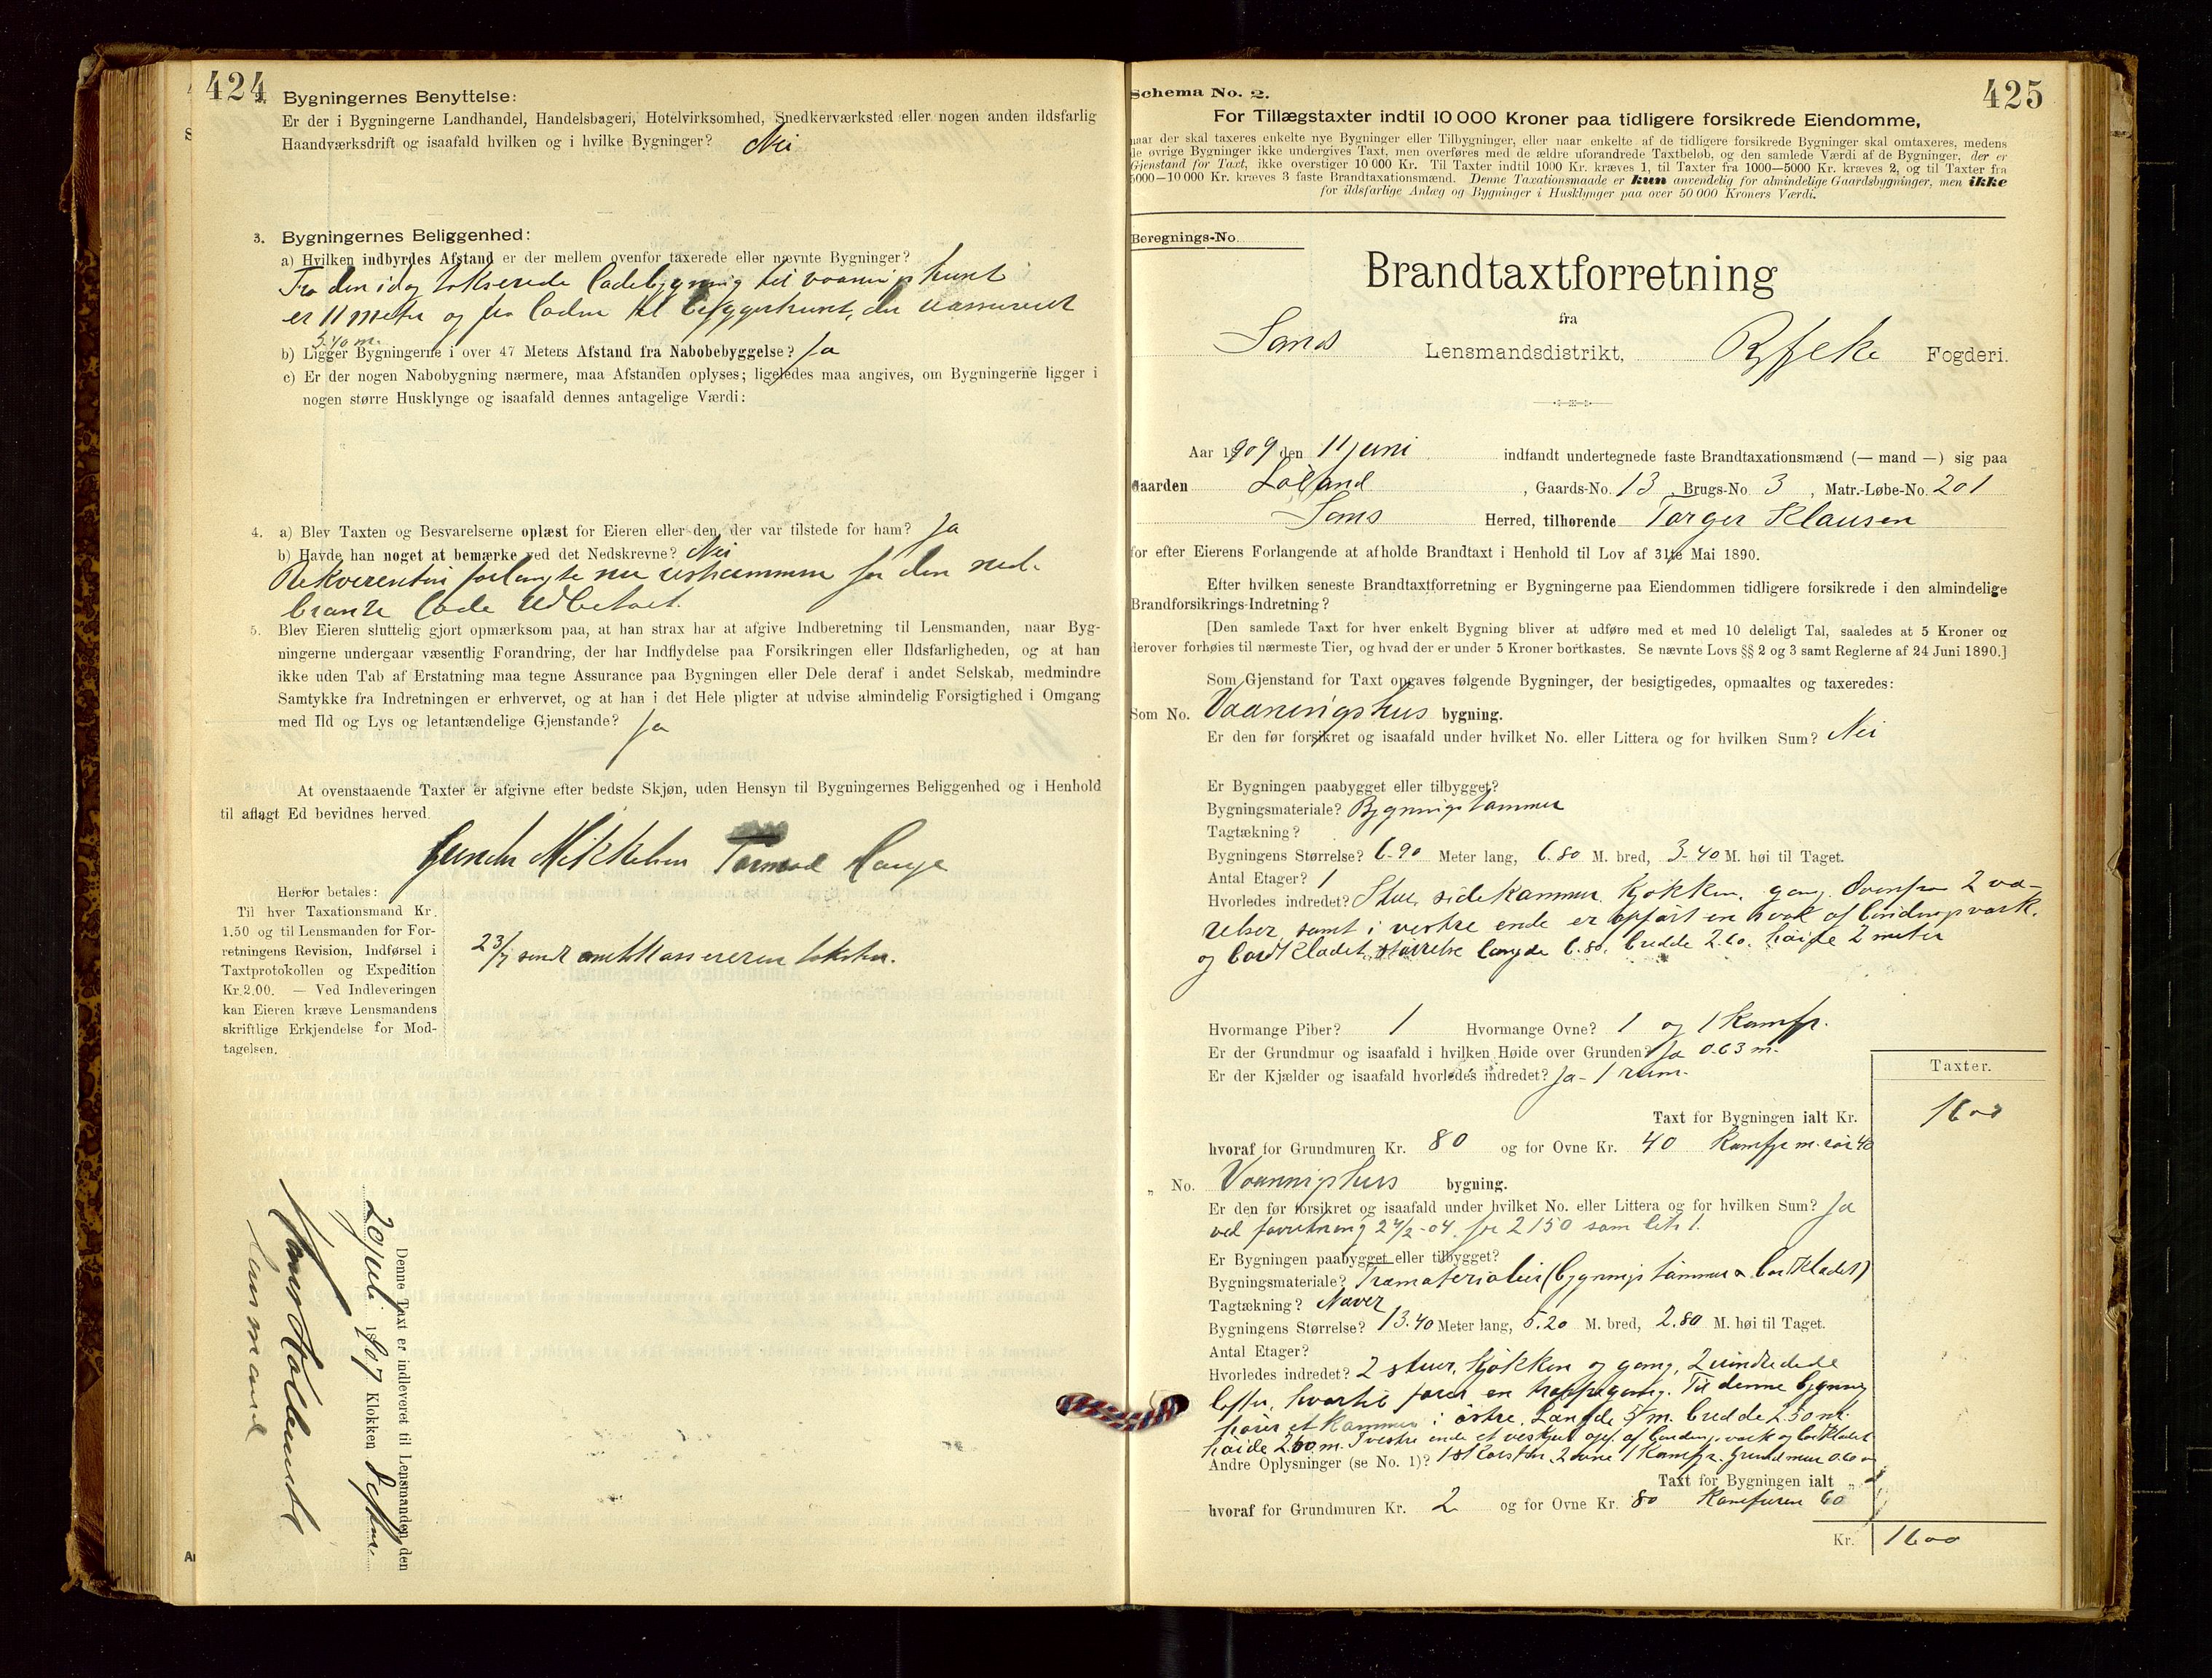 424
2. Bygningernes Benyttelse:
Er der i Bygningerne Landhandel, Handelsbageri, Hotelvirksomhed, Snedkerværksted eller nogen anden ildsfarlig
Haandværksdrift og isaafald hvilken og i hvilke Bygninger? Nei
3. Bygningernes Beliggenhed:
a) Hvilken indbyrdes Afstand er der mellem ovenfor taxerede eller nævnte Bygninger?
Fra den idag takserede ladebygning til vaaningshuset
er 11 meter og fra laden til bryggerhuset, der uassureret
5.40 m.
b) Ligger Bygningerne i over 47 Meters Afstand fra Nabobebyggelse? Ja
c) Er der nogen Nabobygning nærmere, maa Afstanden oplyses; ligeledes maa angives, om Bygningerne ligger i
nogen større Husklynge og isaafald dennes antagelige Værdi:
4. a) Blev Taxten og Besvarelserne oplæst for Eieren eller den, der var tilstede for ham? Ja
b) Havde han noget at bemærke ved det Nedskrevne? Nei
Rekverenten forlangte nu for den ned-
brante lade udbetalt.
5. Blev Eieren sluttelig gjort opmærksom paa, at han strax har at afgive Indberetning til Lensmanden, naar Byg-
ningerne undergaar væsentlig Forandring, der har Indflydelse paa Forsikringen eller Ildsfarligheden, og at han
ikke uden Tab af Erstatning maa tegne Assurance paa Bygningen eller Dele deraf i andet Selskab, medmindre
Samtykke fra Indretningen er erhvervet, og at han i det Hele pligter at udvise almindelig Forsigtighed i Omgang
med Ild og Lys og letantændelige Gjenstande? Ja
At ovenstaaende Taxter er afgivne efter bedste Skjøn, uden Hensyn til Bygningernes Beliggenhed og i Henhold
til aflagt Ed bevidnes herved.
Gunder Mikkelsen Tormod Hauge
Herfor betales:
Til hver Taxationsmand Kr.
1.50 og til Lensmanden for For-
retningens Revision, Indførsel i
Taxtprotokollen og Expedition
Kr. 2.00. — Ved Indleveringen
kan Eieren kræve Lensmandens
skriftlige Erkjendelse for Mod-
tagelsen.
23/7 sendt amtskassereren taksten.
Denne Taxt er indleveret til Lensmanden den
20 juli 1907 Klokken
Lensmand
425
Schema No. 2.
For Tillægstaxter indtil 10 000 Kroner paa tidligere forsikrede Eiendomme,
naar der skal taxeres enkelte nye Bygninger eller Tilbygninger, eller naar enkelte af de tidligere forsikrede Bygninger skal omtaxeres, medens
de øvrige Bygninger ikke undergives Taxt, men overføres med de ældre uforandrede Taxtbeløb, og den samlede Værdi af de Bygninger, der er
Gjenstand for Taxt, ikke overstiger 10 000 Kr. Til Taxter indtil 1000 Kr. kræves 1, til Taxter fra 1000—5000 Kr. kræves 2, og til Taxter fra
5000—10 000 Kr. kræves 3 faste Brandtaxationsmænd. Denne Taxationsmaade er kun anvendelig for almindelige Gaardsbygninger, men ikke
for ildsfarlige Anlæg og Bygninger i Husklynger paa over 50 000 Kroners Værdi.
Beregnings-No.
Brandtaxtforretning
fra
Sands Lensmandsdistrikt, Ryfylke Fogderi.
Aar 1909 den 11 juni indfandt undertegnede faste Brandtaxationsmænd (— mand —) sig paa
Gaarden Løland, Gaards-No. 13, Brugs-No. 3, Matr.-Løbe-No. 201
Sands Herred, tilhørende Torger Klausen
for efter Eierens Forlangende at afholde Brandtaxt i Henhold til Lov af 31te Mai 1890.
Efter hvilken seneste Brandtaxtforretning er Bygningerne paa Eiendommen tidligere forsikrede i den almindelige
Brandforsikrings-Indretning?
[Den samlede Taxt for hver enkelt Bygning bliver at udføre med et med 10 deleligt Tal, saaledes at 5 Kroner og
derover forhøies til nærmeste Tier, og hvad der er under 5 Kroner bortkastes. Se nævnte Lovs §§ 2 og 3 samt Reglerne af 24 Juni 1890.]
Som Gjenstand for Taxt opgaves følgende Bygninger, der besigtigedes, opmaaltes og taxeredes:
Som No. Vaaningshus bygning.
Er den før forsikret og isaafald under hvilket No. eller Littera og for hvilken Sum? Nei
Er Bygningen paabygget eller tilbygget?
Bygningsmateriale? Bygningstømmer
Tagtækning?
Bygningens Størrelse? 6.90 Meter lang, 6.80 M. bred, 3.40 M. høi til Taget.
Antal Etager? 1
Hvorledes indredet? Stue, sidekammer, kjøkken, gang. Ovenfor 2 væ-
relser, samt i vestre ende er opført en svok af bindingsværk.
og bordklædet, størrelse længde 6.80, bredde 2.60. høide 2 meter
Hvormange Piber? 1 Hvormange Ovne? 1 og 1 komfr.
Er der Grundmur og isaafald i hvilken Høide over Grunden? Ja 0.63 m.
Er der Kjælder og isaafald hvorledes indredet? Ja - 1 rum.
Taxter.
Taxt for Bygningen ialt Kr. 1600
hvoraf for Grundmuren Kr. 80 og for Ovne Kr. 40 Komfyr m. rør 40
" No. Vaaningshus bygning.
Er den før forsikret og isaafald under hvilket No. eller Littera og for hvilken Sum? Ja
ved forretning 24/2-04. for 2150 som litr 1.
Er Bygningen paabygget eller tilbygget?
Bygningsmateriale? Træmaterialier (bygningstømmer & bordklædet)
Tagtækning? Naver
Bygningens Størrelse? 13.40 Meter lang, 5.20 M. bred, 2.80 M. høi til Taget.
Antal Etager?
Hvorledes indredet? 2 stuer, kjøkken og gang, 2 uindredede
lofter, hvortil fører en trappegang. Til denne bygning
hører et kammer i østre, Længde 5 m. bredde 2.50 m.
høide 2.60 m. I vestre ende et vedskjul opf. af bindingsværk og bordklædet
Andre Oplysninger (se No. 1)? 1 skorsten, 2 ovne 1 komfyr. Grundmur 0.60 m
Taxt for Bygningen ialt "
hvoraf for Grundmuren Kr. 2 og for Ovne Kr. 80 Komfuren 60
Kr. 1600